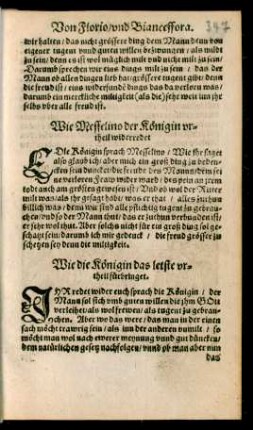 Von Florio/vnd Bianceffora.
347
wir halten / das nicht grössere ding dem Mann denn von
eigener tugent vnd guten willen bezwungen / als mild
zu sein / denn es ist wol müglich milt vnd nicht milt zu sein /
Darumb sprechen wir eins dings milt zu sein / das der
Mann ob allen dingen lieb hat grössere tugent gibt / denn
die freud ist / eins widerfund dings das da verloren was /
darumb ein mercliche miltigkeit (als die) sehr weit vm jhr
selbs vber alle freud ist.
Wie Messelino der Königin vr-
theil widerredet
EDle Königin sprach Messelino / Wie jhr saget
also glaub ich / aber mich ein groß ding zu beden-
cken sein duncket die freud des Manns / dem sei-
ne verloren Fraw wider ward / des pein an jrem
todt auch am grösten gewesen ist / Vnd ob wol der Ritter
milt was / als jhr gesagt habt / was er that / alles zuthun
billich was / denn wir sind alle pflichtig tugent zu gebrau-
chen / vnd so der Mann thut / das er zuthun verbunden ist /
er sehr wol thut. Aber solchs nicht für ein groß ding sol ge-
schaetzt sein / darumb ich mir gedacht / die freud grösser zu
schetzen sey denn die miltigkeit.
Wie die Königin das letste vr-
theil fürbringet.
JHR redet wider euch sprach die Königin / der
Mann sol sich vmb guten willen die jhm GOtt
verleihet / als wol frewen / als tugent zu gebrau-
chen. Aber wo das were / das man in der einen
sach möcht trawrig sein / als inn der anderen vnmilt / so
möcht man wol nach ewerer meynung vnnd gut düncken /
dem natürlichen gesetz nachfolgen / vnnd ob man aber nun
das